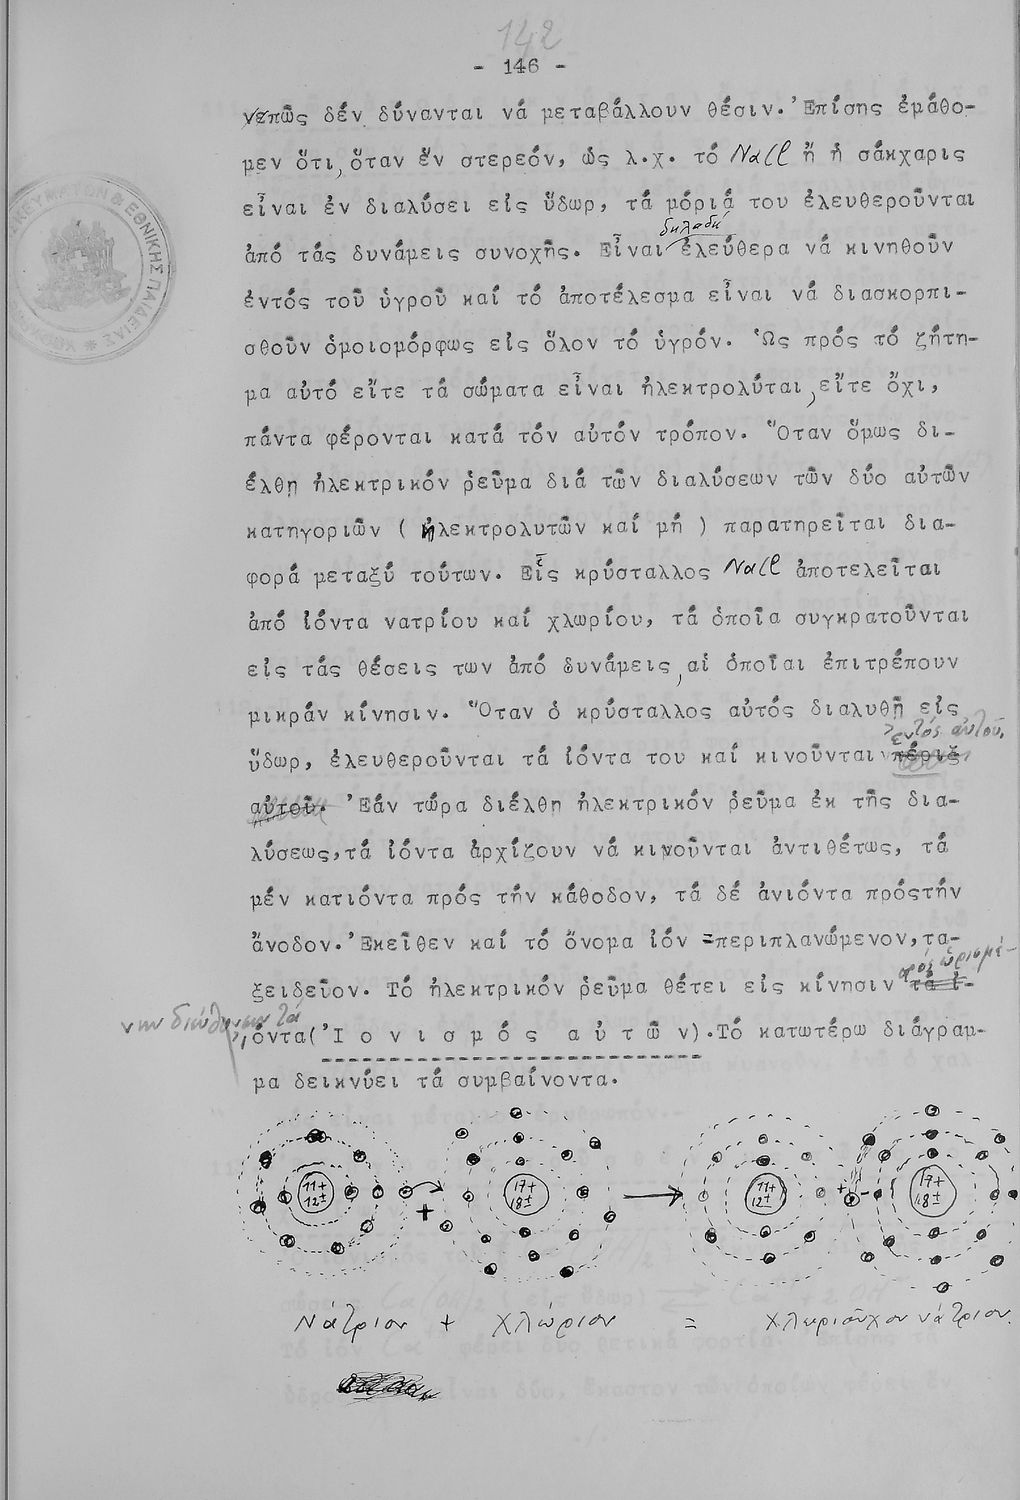 142
- 146 -
νεπῶς δέν δύνανται νά μεταβάλλουν θέσιν. Ἐπίσης ἐμάθο-
μεν ὅτι, ὅταν ἕν στερεόν, ὡς λ.χ. τό NaCl ἤ ἡ σάκχαρις
εἶναι ἐν διαλύσει εἰς ὕδωρ, τά μόριά του ἐλευθεροῦνται
δηλαδή
ἀπό τάς δυνάμεις συνοχῆς. Εἶναι ἐλεύθερα νά κινηθοῦν
ἐντός τοῦ ὑγροῦ καί τό ἀποτέλεσμα εἶναι νά διασκορπι-
σθοῦν ὁμοιομόρφως εἰς ὅλον τό ὑγρόν. Ὡς πρός τό ζήτη-
μα αὐτό εἴτε τά σώματα εἶναι ἠλεκτρολύται, εἴτε ὄχι,
πάντα φέρονται κατά τόν αὐτόν τρόπον. Ὅταν ὅμως δι-
έλθῃ ἠλεκτρικόν ῥεῦμα διά τῶν διαλύσεων τῶν δύο αὐτῶν
κατηγοριῶν ( ἠλεκτρολυτῶν καί μή ) παρατηρεῖται δια-
φορά μεταξύ τούτων. Εἷς κρύσταλλος NaCl ἀποτελεῖται
ἀπό ἰόντα νατρίου καί χλωρίου, τά ὁποῖα συγκρατοῦνται
εἰς τάς θέσεις των ἀπό δυνάμεις, αἱ ὁποῖαι ἐπιτρέπουν
μικράν κίνησιν. Ὅταν ὁ κρύσταλλος αὐτός διαλυθῇ εἰς
ἐντός αὐτοῦ.
ὕδωρ, ἐλευθεροῦνται τά ἰόντα του καί κινοῦνται πέριξ
αὐτοῦ. Ἐάν τώρα διέλθῃ ἠλεκτρικόν ῥεῦμα ἐκ τῆς δια-
λύσεως, τά ἰόντα ἀρχίζουν νά κινοῦνται ἀντιθέτως, τά
μέν κατιόντα πρός τήν κάθοδον, τά δέ ἀνιόντα πρόςτήν
ἄνοδον. Ἐκεῖθεν καί τό ὄνομα ἰόν =περιπλανώμενον, τα-
πρός ὡρισμέ-
ξειδεῦον. Τό ἠλεκτρικόν ῥεῦμα θέτει εἰς κίνησιν τά ἰ-
νην διεύθυνσιν τά
όντα( Ἰ ο ν ι σ μ ό ς α ὐ τ ῶ ν). Τό κατωτέρω διάγραμ-
μα δεικνύει τά συμβαίνοντα.
11+ 12± + 17+ 18± → 11+ 12± + - 17+ 18±
Νάτριον + Χλώριον = Χλωριοῦχον νάτριον.